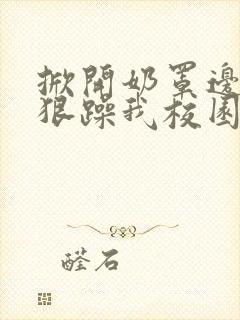 掀開奶罩邊
狠躁我校園
醛石